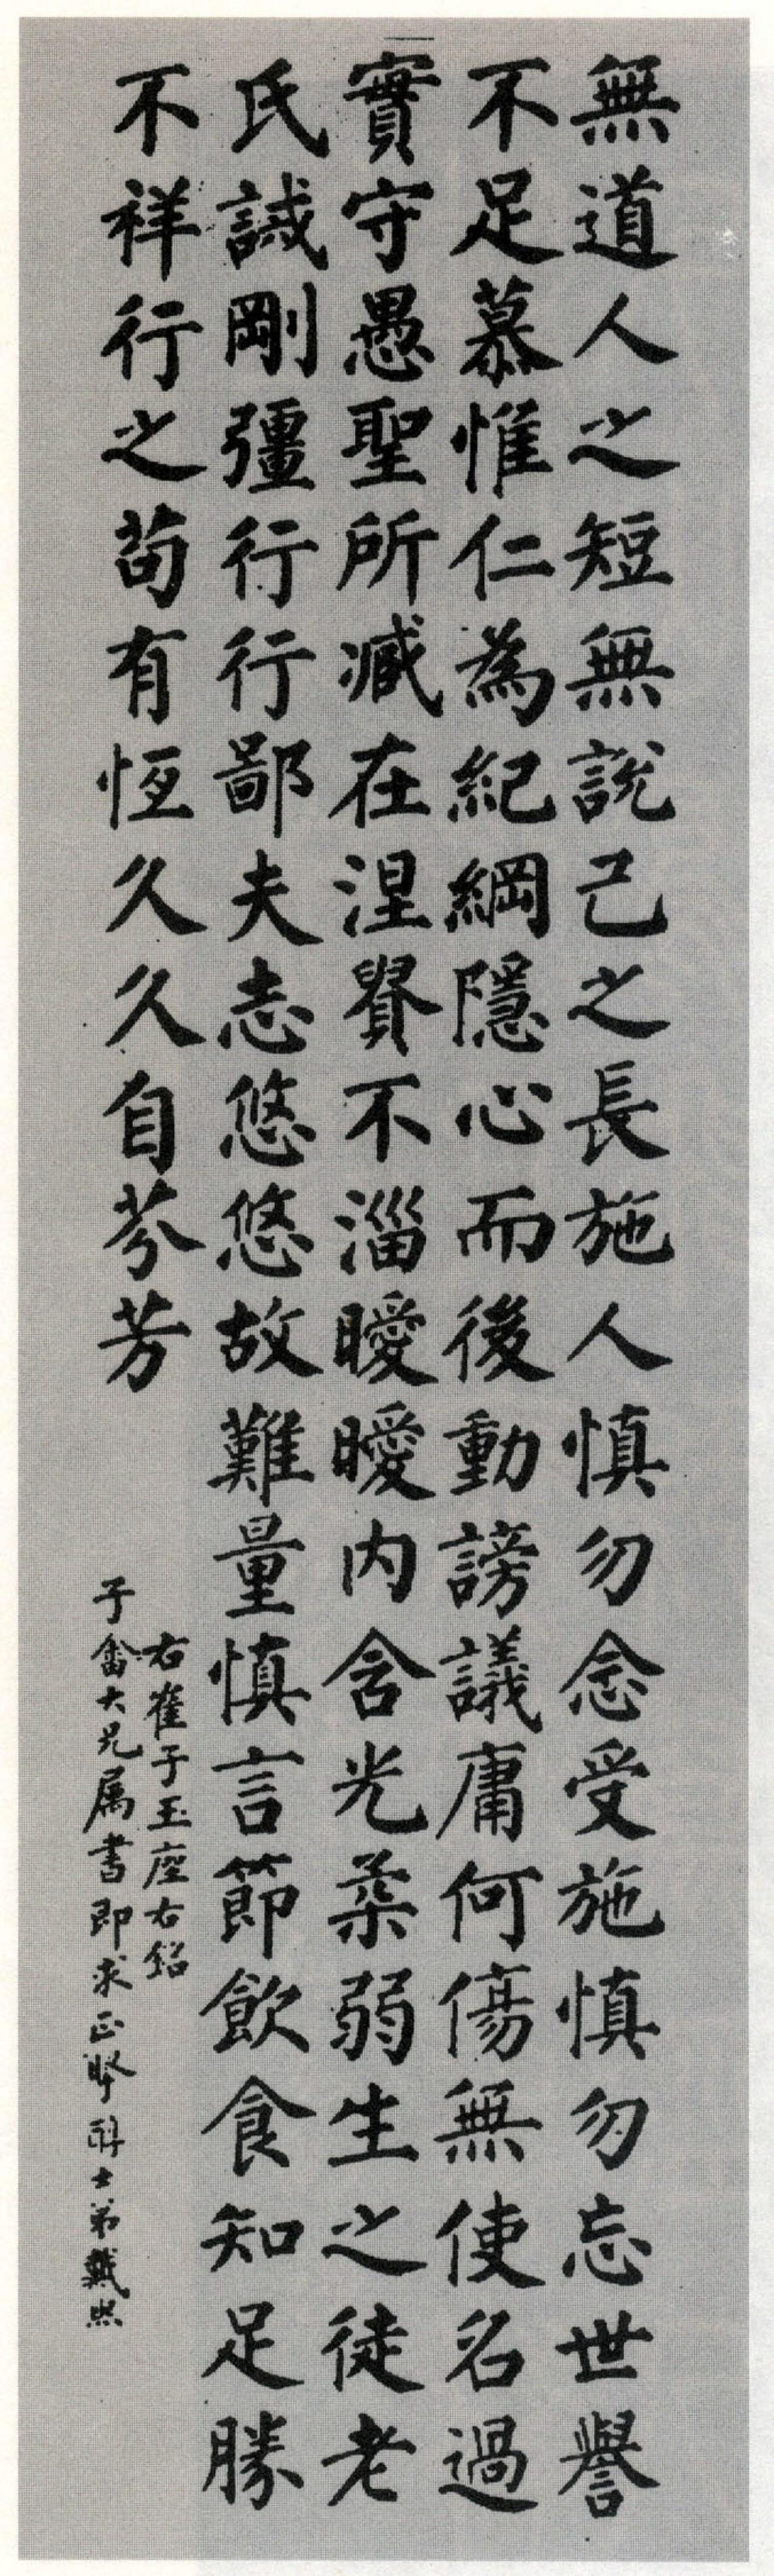 無道人之短無說己之長施人慎勿念受施慎勿忘世譽
不足慕惟仁為紀綱隱心而後動謗議庸何傷無使名過
實守愚聖所臧在涅貴不淄曖曖内含光柔弱生之徒老
氏誡剛彊行行鄙夫志悠悠故難量慎言節飲食知足勝
不祥行之苟有恆久久自芬芳
右崔子玉座右銘
子畬大兄属書即求正 醇士弟戴熙